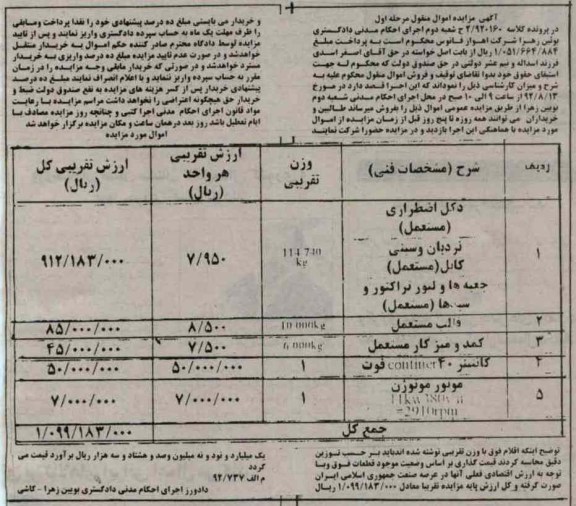 آگهی مزایده اموال منقول مرحله اول
در پرونده کلاسه ۲/۹۲۰۱۶۰ ج شعبه دوم اجرای احکام مدنی دادگستری
بوئین زهرا شرکت اهواز فانوس محکوم است به پرداخت مبلغ
۱/۰۵۱/۶۶۴/۸۸۴ ریال از بابت اصل خواسته در حق آقای اصغر اسدی
فرزند اسداله و نیم عشر دولتی در حق صندوق دولت که محکوم له جهت
استیفای حقوق خود بدوا تقاضای توقیف و فروش اموال منقول محکوم علیه به
شرح و میزان کارشناسی ذیل را نموده‌اند که این اجرا قصد دارد در مورخ
۹۴/۸/۱۳ از ساعت ۹ الی ۱۰ صبح در محل اجرای احکام مدنی شعبه دوم
بویین زهرا از طریق مزایده عمومی اموال ذیل را بفروش میرساند طالبین و
خریداران می توانند همه روزه تا پنج روز قبل از زمان مزایده از اموال
مورد مزایده با هماهنگی این اجرا بازدید و در مزایده حضور شرکت نمایند
و خریدار می بایستی مبلغ ده درصد پیشنهادی خود را نقدا پرداخت ومابقی
را ظرف مهلت یک ماه به حساب سپرده دادگستری واریز نمایند و پس از تایید
مزایده توسط دادگاه محترم صادر کننده حکم اموال به خریدار منتقل
خواهدشد و در صورت عدم تایید مزایده مبلغ ده درصد واریزی به خریدار
مسترد خواهدشد و در صورتی که خریدار مابقی وجه مزایده را در زمان
مقرر به حساب سپرده واریز ننماید و یا اعلام انصراف نمایند مبلغ ده درصد
پیشنهادی خریدار پس از کسر هزینه های مزایده به نفع صندوق دولت ضبط و
خریدار حق هیچگونه اعتراضی را نخواهد داشت مراسم مزایده با رعایت
مواد قانون اجرای احکام مدنی اجرا کنی و چنانچه روز مزایده مصادف با
ایام تعطیل باشد روز بعد درهمان ساعت و مکان مزایده برگزار خواهد شد
اموال مورد مزایده
ردیف شرح (مشخصات فنی) وزن تقریبی ارزش تقریبی هر واحد (ریال) ارزش تقریبی کل (ریال)
دکل اضطراری
(مستعمل)
نردبان وسینی
کابل(مستعمل)
جعبه ها و لنور تراکتور و
(مستعمل)
۱ 114 740 kg ۷/۹۵۰ ۹۱۲/۱۸۳/۰۰۰
۲ قالب مستعمل 10 000kg ۸/۵۰۰ ۸۵/۰۰۰/۰۰۰
۳ کمد و میز کار مستعمل 6 000kg ۷/۵۰۰ ۴۵/۰۰۰/۰۰۰
۴ کانتینر continer ۴۰ فوت ۱ ۵۰/۰۰۰/۰۰۰ ۵۰/۰۰۰/۰۰۰
۵ موتور موتوژن ۱ ۷/۰۰۰/۰۰۰ ۷/۰۰۰/۰۰۰
=2910rpm
جمع کل ۱/۰۹۹/۱۸۳/۰۰۰
توضیح اینکه اقلام فوق با وزن تقریبی نوشته شده اندباید بر حسب توزین
دقیق محاسبه گردند قیمت گذاری بر اساس وضعیت موجود قطعات فوق وبا
توجه به ارزش اقتصادی فعلی آنها در عرصه صنعت جمهوری اسلامی ایران
صورت گرفته و کل ارزش پایه مزایده تقریبا معادل ۱/۰۹۹/۱۸۳/۰۰۰ ریال
یک میلیارد و نود و نه میلیون وصد و هشتاد و سه هزار ریال برآورد قیمت می
گردد
م الف ۹۴/۷۳۷
دادورز اجرای احکام مدنی دادگستری بویین زهرا - کاشی